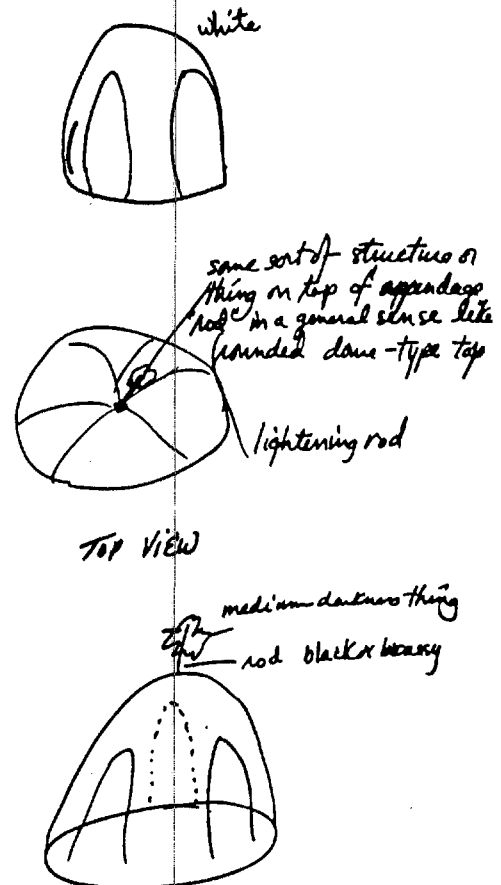 white
some sort of structure or
thing on top of appendage
"rod" in a general sense like
rounded dome-type top
lightening rod
TOP VIEW
medium darkness thing
rod black or